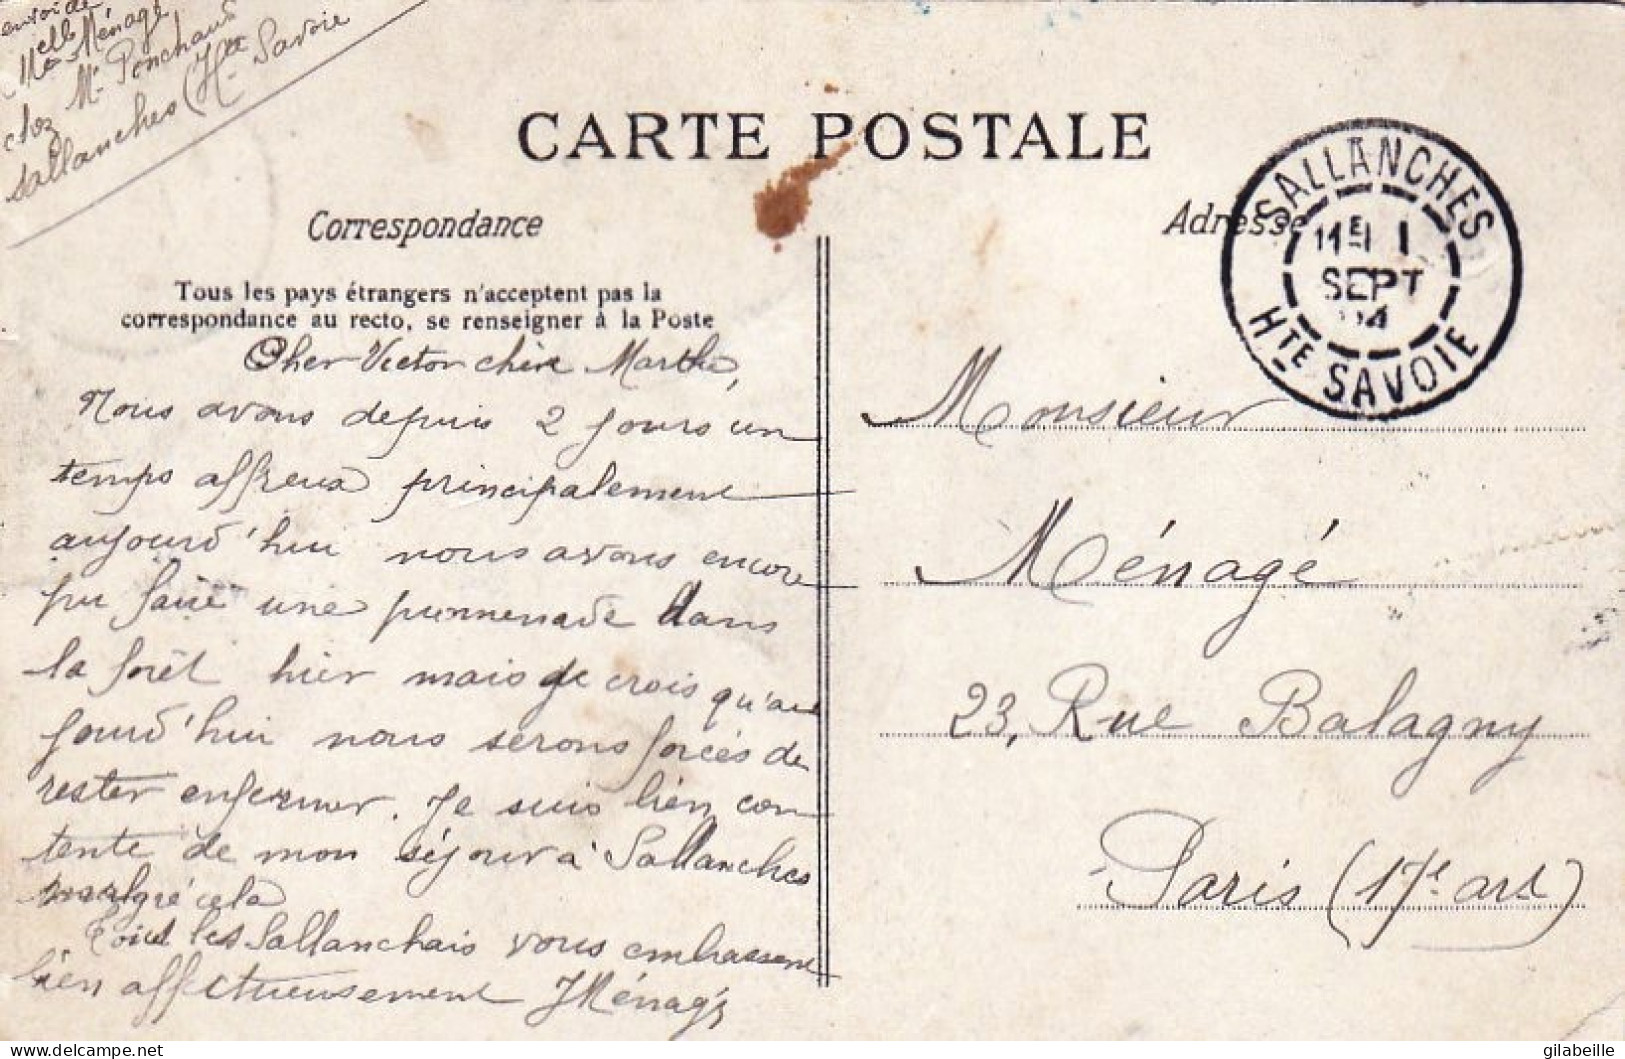 envoi de
Melle Ménagé
chez Mr Ponchaud
Sallanches (Hte Savoie
CARTE POSTALE
Correspondance
Adresse
Tous les pays étrangers n'acceptent pas la
correspondance au recto, se renseigner à la Poste
SALLANCHES
1E 1
SEPT
04
HTE SAVOIE
Cher Victor chère Marthe,
Nous avons depuis 2 jours un
temps affreux principalement
aujourd'hui nous avons encore
pu faire une promenade dans
la forêt hier mais je crois qu'au
jourd'hui nous serons forcés de
rester enfermer. Je suis bien con
tente de mon séjour à Sallanches
malgré cela
Tous les Sallanchais vous embrassent
bien affectueusement JMénagé
Monsieur
Ménagé
23, Rue Balagny
Paris (17e art)
gilabeille